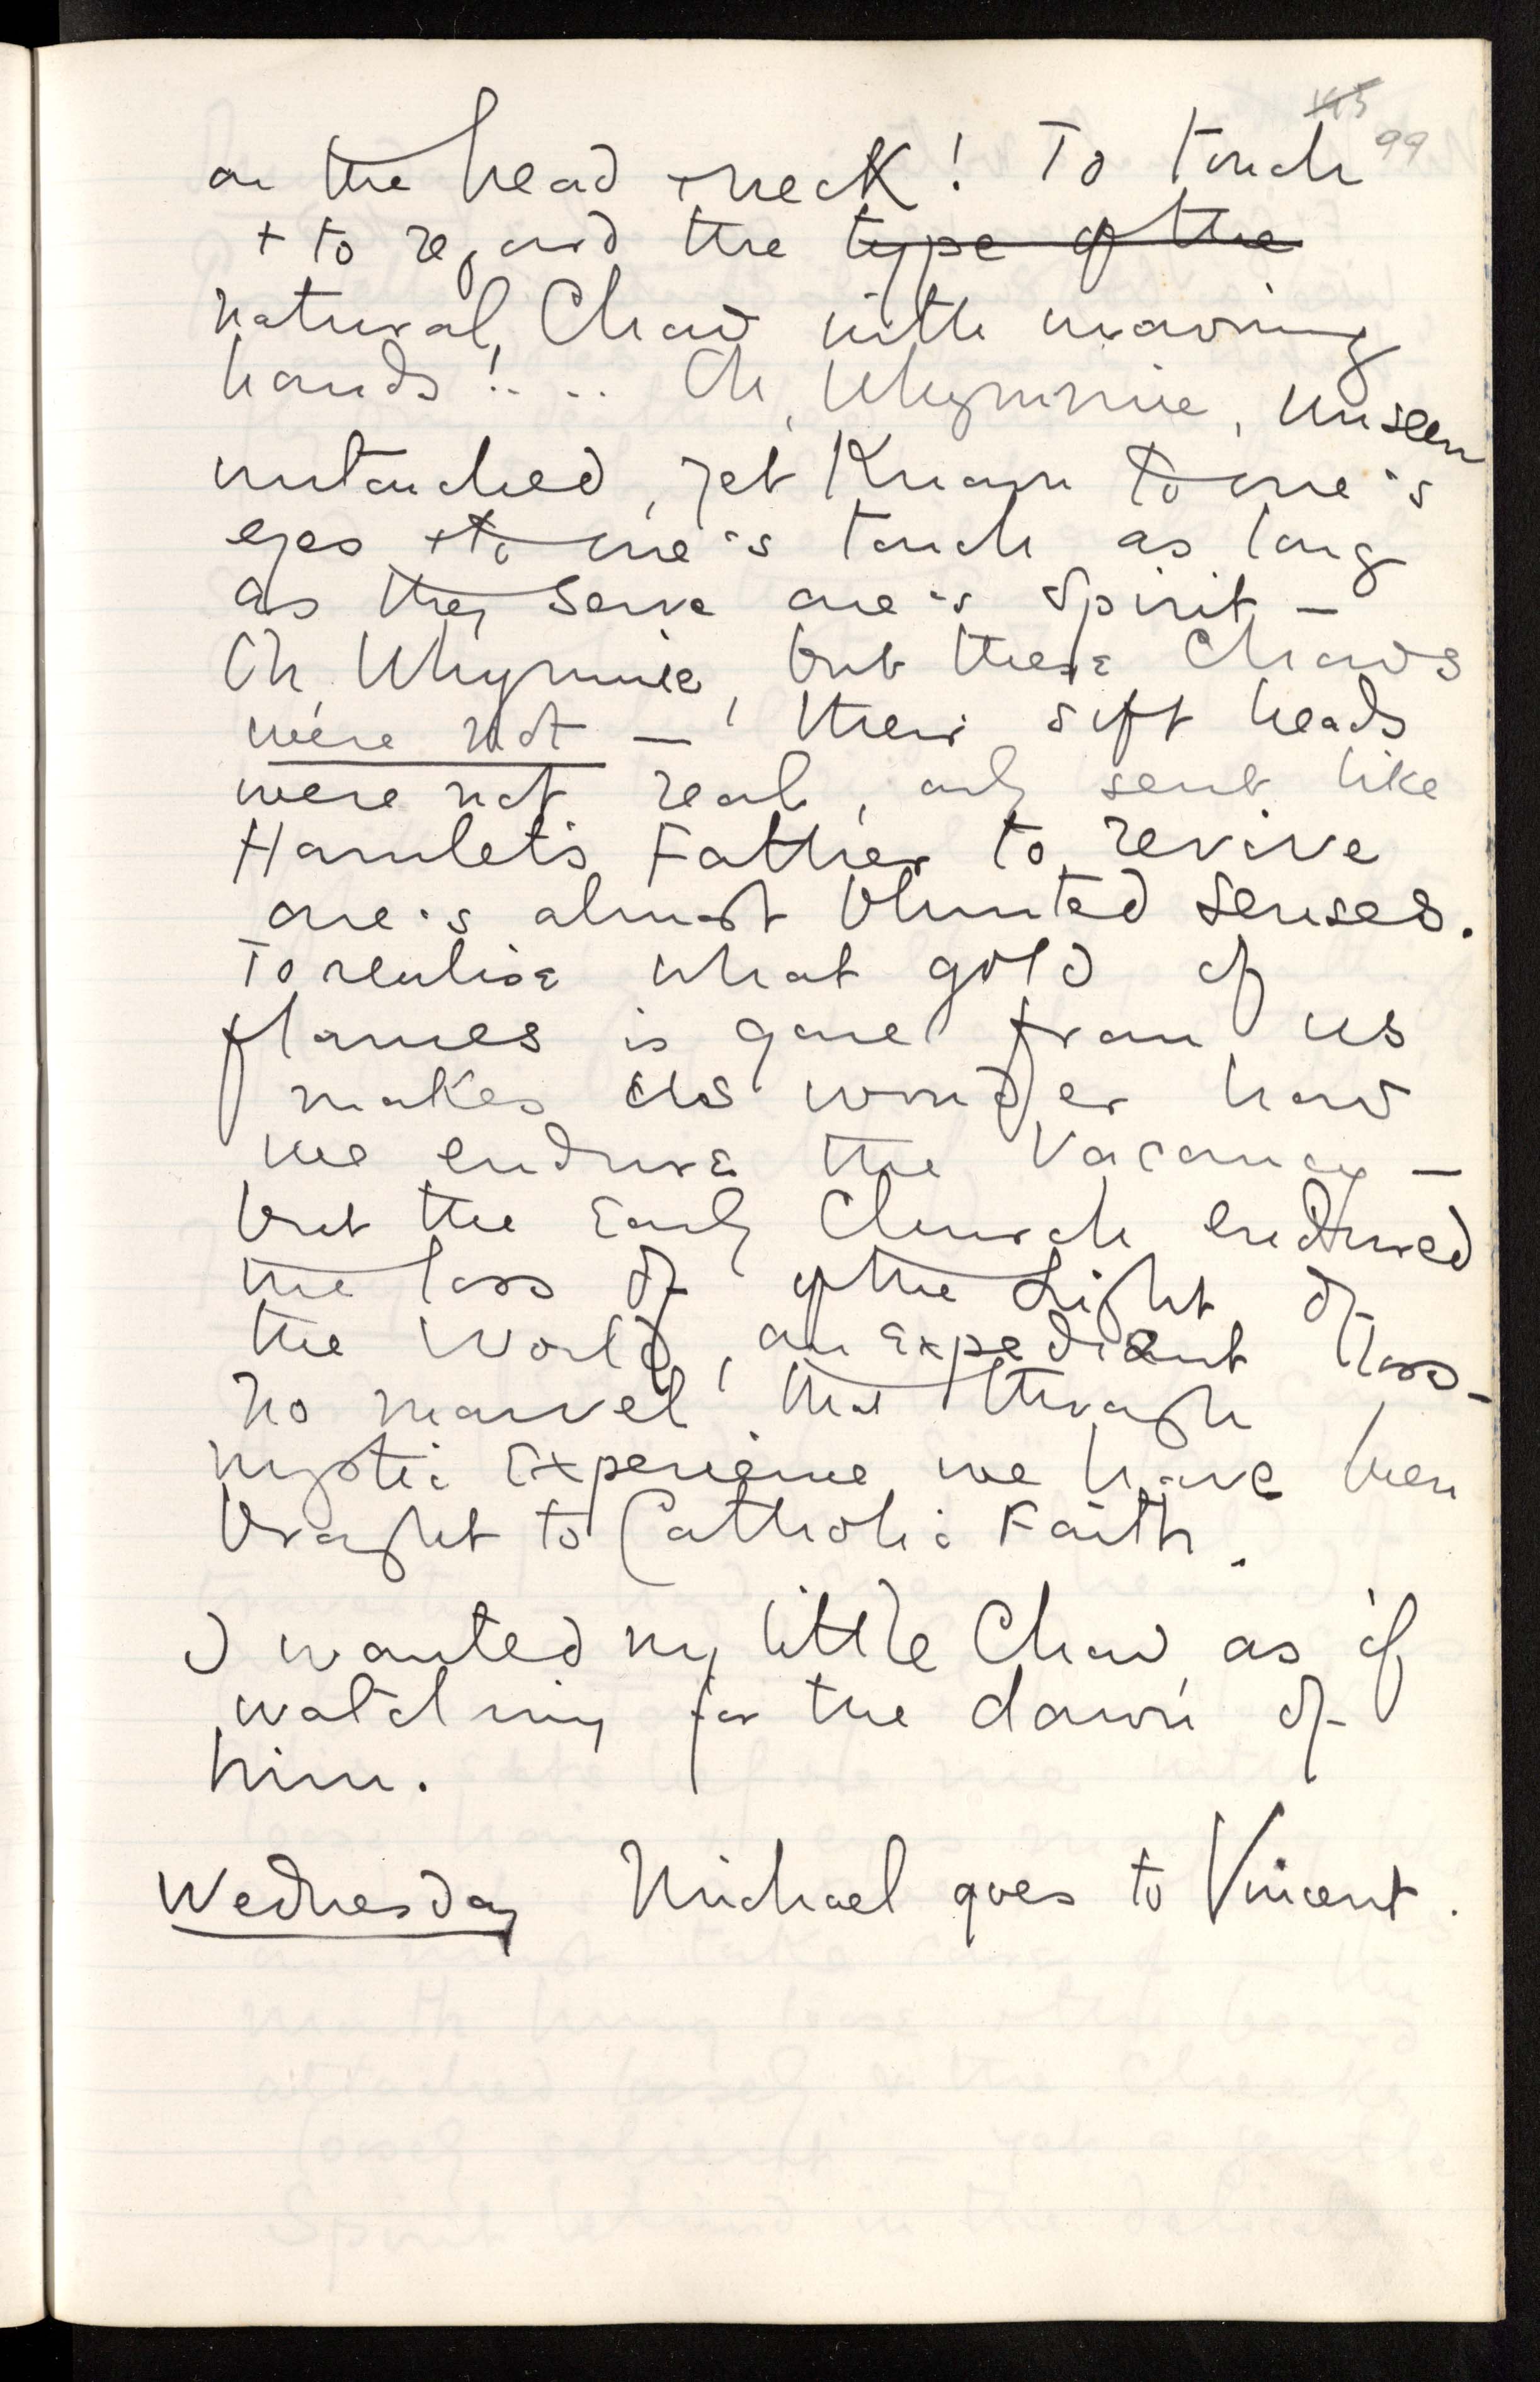 99
on the head + neck! To touch
+ to regard the type of the
natural Chow with moving
hands!.... Oh, Whymmie, unseen
untouched, yet Known to one's
eyes + to one's touch as long
as they serve one's Spirit –
Oh Whymmie, but these Chows
were not – their soft heads
were not real, only sent like
Hamlet's Father to revive
one's almost blunted senses.
To realise what gold of
flames is gone from us
makes us wonder how
we endure the vacancy –
but the Early Church endured
the loss of of the Light of
the World, an Expedient loss –
No marvel that through
mystic Experience we have been
brought to Catholic Faith.
I wanted my little Chow as if
watching for the dawn of
him.
Wednesday Michael goes to Vincent.